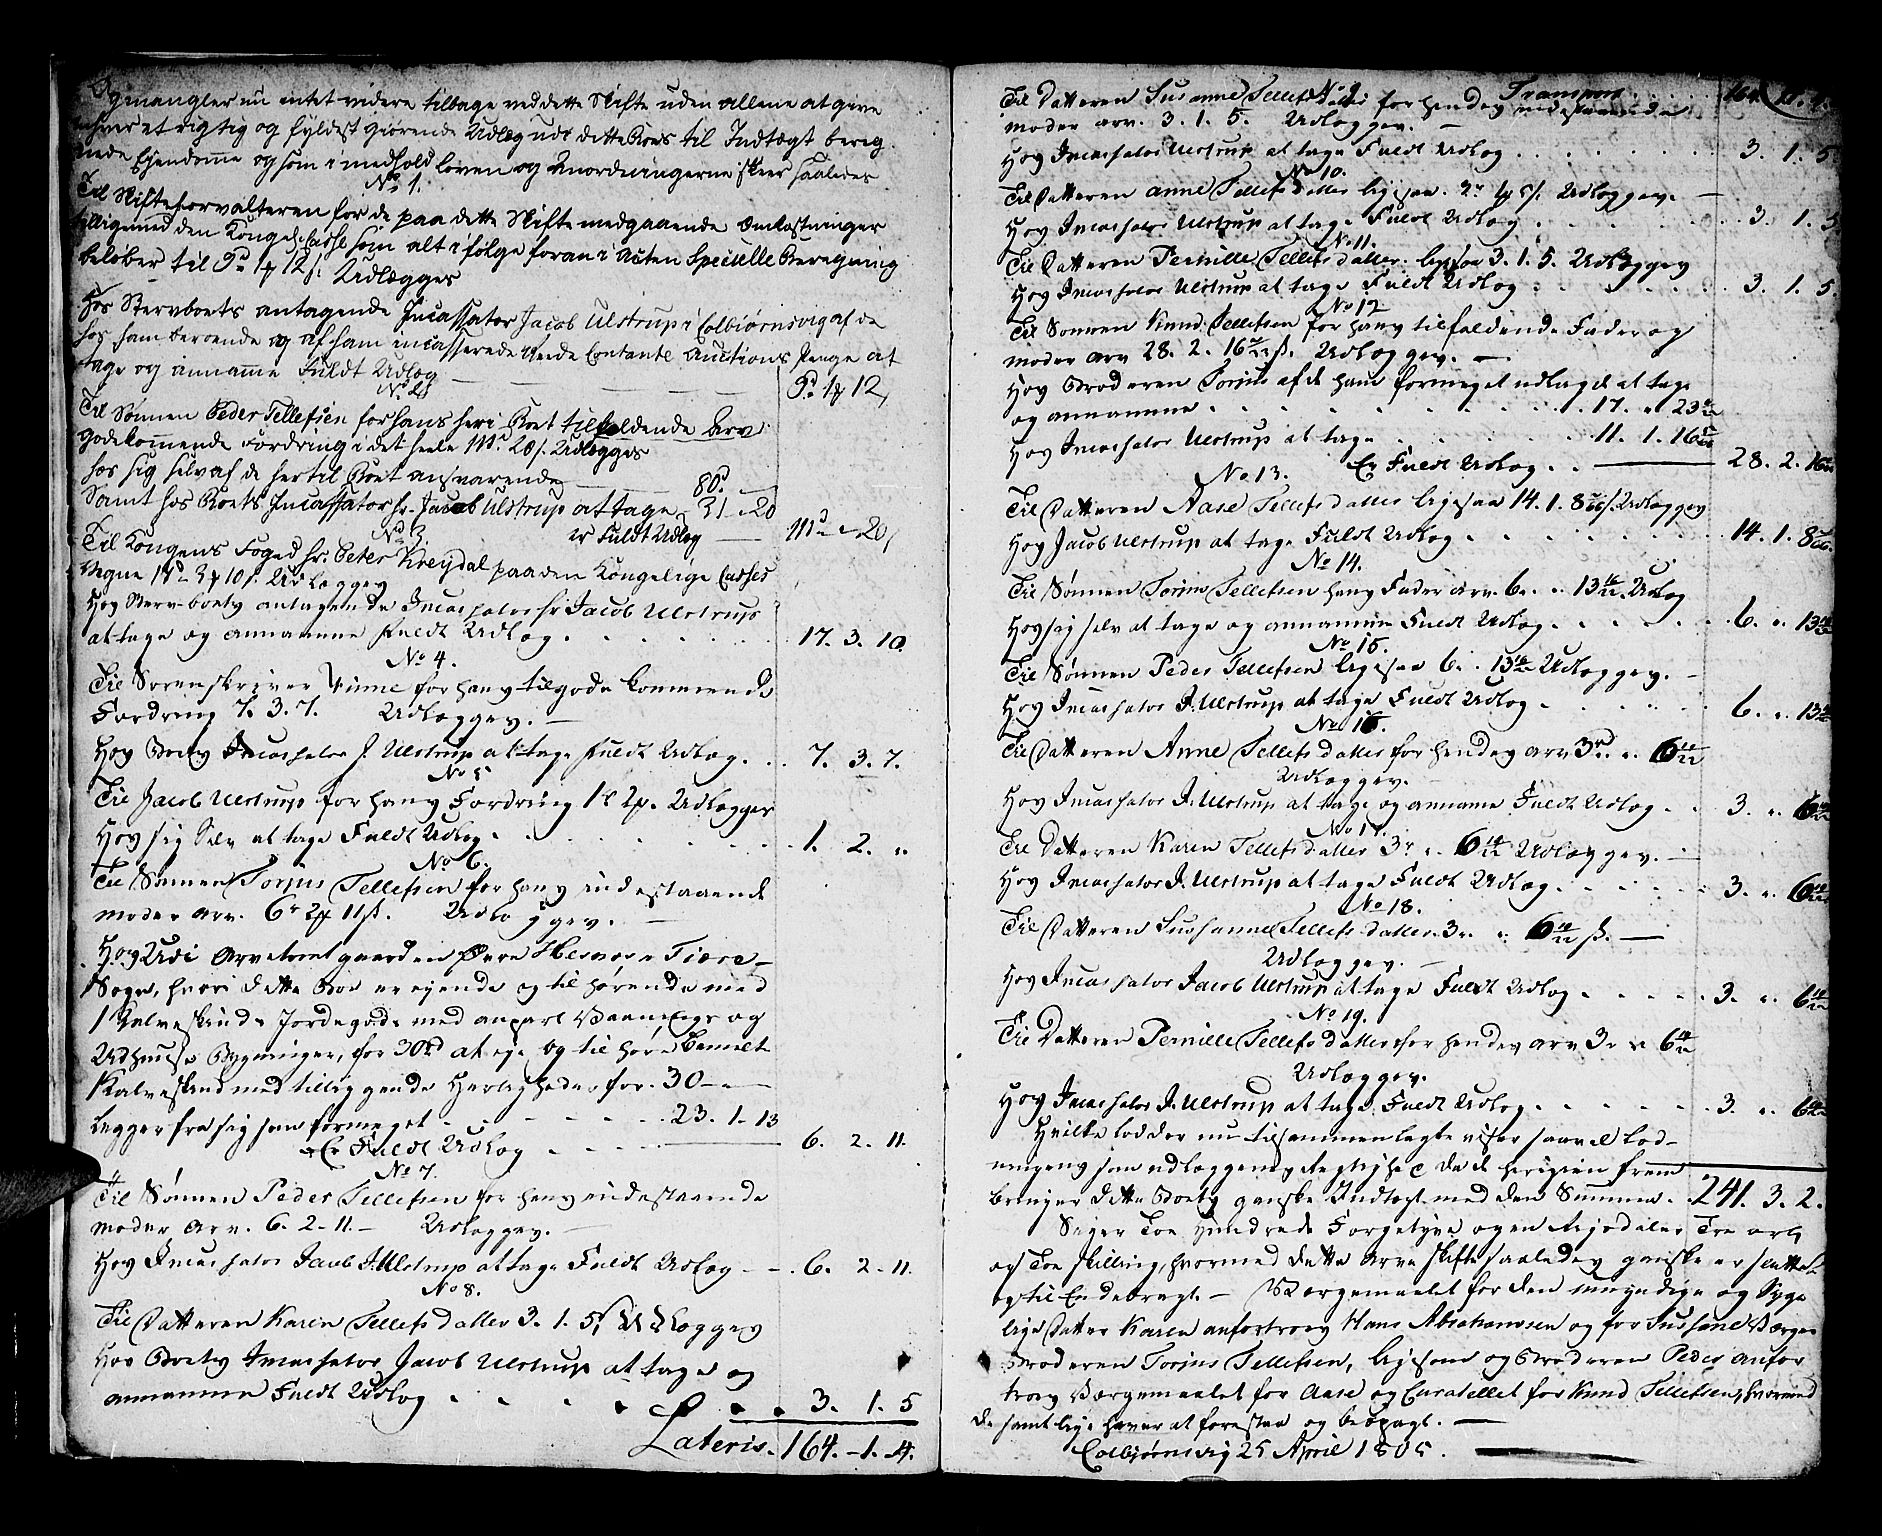 Ogmangler nu intet videre tilbage ved dette Skifte uden allene at give
enhver et rigtig og fyldest giørende Udlæg udi dette Boes til Indtægt bereg
nede Ejendomme og som i medhold loven og Anordningerne skeer saaledes
No 1.
Til Skifteforvalteren for de paa dette Skifte medgaaende Omkostninger
tilligemed den Kongel: Casse som alt i følge foran i Acten Specielle Beregning
beløber til 9d 1 12 s. Udlægges
Hos Stervboets antagende Incassator Jacob Ulstrup i Colbiørnsvig af de
hos ham beroende og af ham incasserede Contante Auctions Penge at
tage og annamme Fuldt Udlæg
9d 1 12
No 2
Til Sønnen Peder Tellefsen for hans her i Boet tilfaldende Arv
godekommende Fordring i det heele 111d 20 s. Udlægges
hos sig selv af de hertil Boet ansvarende 80d
Samt hos Boets Incassator hr. Jacob Ulstrup at tage 31 - 20
er Fuldt Udlæg 111d - 20
No 3.
Til Kongens Foged hr. Peter Kreydal paa den Kongelige Casses
Vegne 17d 3 10 s. Udlægges
Hos Sterv-boets antagende Incassator hr Jacob Ulstrup
at tage og annamme Fuldt Udlæg . . . 17. 3. 10.
No 4.
Til Sorenskriver Finne for hans tilgode kommende
Fordring 7. 3. 7. Udlægges. —
Hos Boets Incassator J. Ulstrup at tage Fuldt Udlæg . . 7. 3. 7.
No 5
Til Jacob Ulstrup for hans Fordring 1 2 Udlægges
Hos sig Selv at tage Fuldt Udlæg . . . 1. 2. "
No 6.
Til Sønnen Torjus Tellefsen for hans indestaaende
moder arv. 6r 2 11 ß. Udlægges. —
Hos Udi Arvetomt gaarden Øvre Hesnes i Fiære
Sogn, hvori dette Boe er ejende og til hørende med
1 Kalveskinds Jordegods med anpart Vaanings og
Udhuuse Bygninger, for 30d at eje og til høre Bemelte
Kalveskind med tilliggende Herligheder for. 30 - " -
Legger fra sig som formeget . . . 23. 1. 13
Er Fuldt Udlæg . . . 6. 2. 11.
No 7.
Til Sønnen Peder Tellefsen for hans indestaaende
moder arv. 6. 2. 11. — Udlægges. —
Hos Incassator Jacob Ulstrup at tage Fuldt Udlæg - - . 6. 2. 11.
No 8.
Til Datteren Karen Tellefsdatter 3. 1. 5 Udlægges
Hos Boets Incassator Jacob Ulstrup at tage og
annamme Fuldt Udlæg . . . 3. 1. 5
Lateris. 164. - 1. 4.
Transport . . . 164.
Til Datteren Susanne Tellefsdatter for hendes indestaaende
moder arv. 3. 1. 5. Udlægges. —
Hos Incassator Ulstrup at tage Fuldt Udlæg . . . 3. 1. 5
No 10.
Til Datteren Anne Tellefsdatter ligesaa. 3r 1 5 s. Udlægges. —
Hos Incassator Ulstrup at tage Fuldt Udlæg . . . 3. 1. 5
No 11.
Til Datteren Pernille Tellefsdatter. ligesaa 3. 1. 5. Udlægges
Hos Incassator Ulstrup at tage Fuldt Udlæg . . . 3. 1. 5.
No 12
Til Sønnen Knud Tellefsen for hans tilfaldende Fader og
moder arv 28. 2. 16 ß. Udlægges. —
Hos Broderen Torjus af de ham formeget udlagde at tage
og annamme . . . 17. " 23
Hos Incassator Ulstrup at tage . . . 11. 1. 16
Er Fuldt Udlæg . . . 28. 2. 16
No 13.
Til Datteren Aase Tellefsdatter ligesaa 14. 1. 8 Udlægges
Hos Jacob Ulstrup at tage Fuldt Udlæg . . . 14. 1. 8
No 14.
Til Sønnen Torjus Tellefsen hans Fader Arv. 6. " 13 Udlæg
Hos sig selv at tage og annamme Fuldt Udlæg . . . 6. " 13
No 15.
Til Sønnen Peder Tellefsen ligesaa 6. . 13 Udlægges. —
Hos Incassator J. Ulstrup at tage Fuldt Udlæg . . . 6. " 13
No 16.
Til Datteren Anne Tellefsdatter for hendes arv 3rd " 6
Udlægges. —
Hos Incassator J. Ulstrup at tage og annamme Fuldt Udlæg . . 3. " 6
No 17.
Til Datteren Karen Tellefsdatter 3r " 6 Udlægges. —
Hos Incassator J. Ulstrup at tage Fuldt Udlæg . . . 3. " 6
No 18.
Til Datteren Sussanne Tellefsdatter. 3r. " 6 ß. —
Udlægges. —
Hos Incassator Jacob Ulstrup at tage Fuldt Udlæg . . . 3. " 6
No 19.
Til Datteren Pernille Tellefsdatter for hendes arv 3r " 6
Udlægges.
Hos Incassator J. Ulstrup at tage. Fuldt Udlæg . . . 3. " 6
Hvilke lodder nu tilsammenlagte viser saavel lod-
ningens som udlæggenes Rigtighed da de herigien frem
bringer dette Boets ganske Indtægt med den Summa . . 241. 3. 2.
Siger Toe Hundrede Fyrgetyve og en Rigsdaler Tre ort
og Toe skilling, hvormed dette Arve skifte saaledes ganske er sluttet
og til Ende bragt. — Værgemaalet for den umyndige og Syge
lige Datter Karen anfortroes Hans Abrahamsen og for Sussane Værges
Broderen Torjus Tellefsen, ligesom og Broderen Peder anfor
troes Værgemaalet for Aase og Curatellet for Knud Tellefsen, hvormed
de samtlige haver at forestaa og beopagt. —
Colbjørnsvig 25 April 1805.